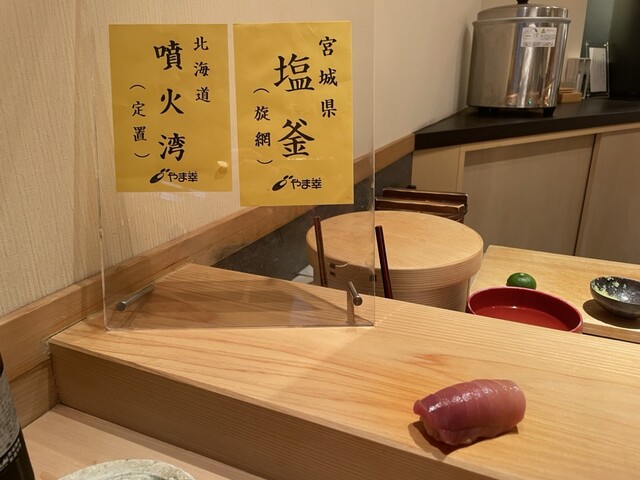 宮城県
塩釜
（旋網）
やま幸
北海道
噴火湾
（定置）
やま幸